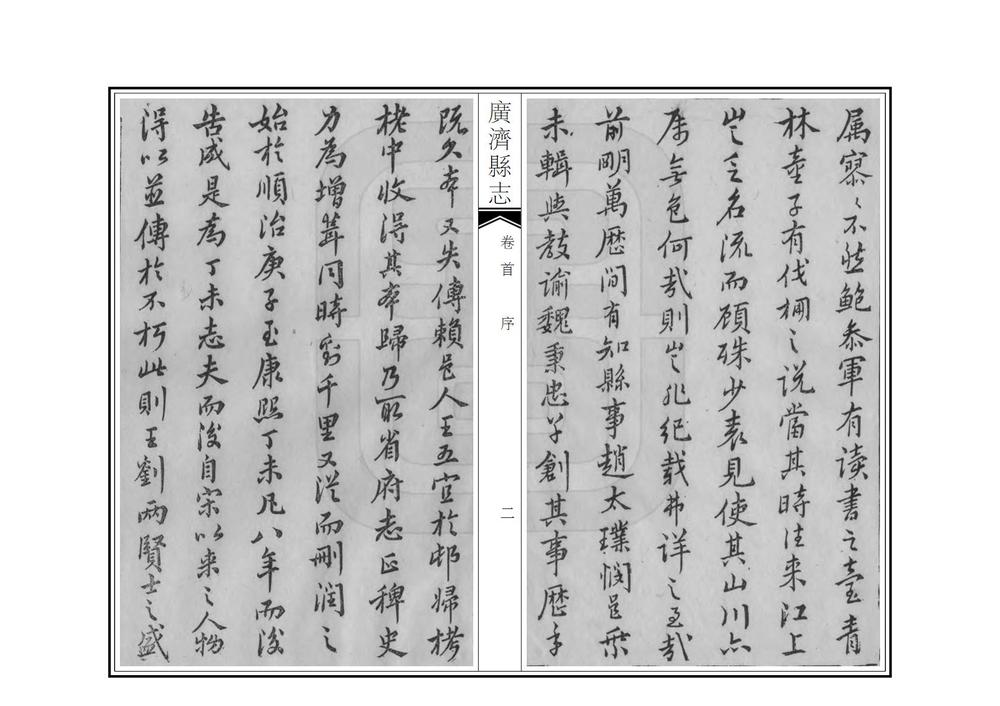 属寥〻不然鮑參軍有读書之臺青
林童子有伐桐之说當其時往来江上
岂乏名流而顾殊少表見使其山川亦
黡無色何哉則岂非纪载弗详之至哉
前明萬歷間有知縣事趙太璞憫邑乘
未輯與教谕魏秉忠草創其事歷年
廣濟縣志
卷首
序
二
既久本又失傳賴邑人王五宜於邨婦栲
栳中收得其本歸乃取省府志正稗史
力為增葺同時劉千里又从而刪润之
始於順治庚子至康熙丁未凡八年而後
告成是為丁未志夫而後自宋以来之人物
得以並傳於不朽此則王劉两賢士之盛